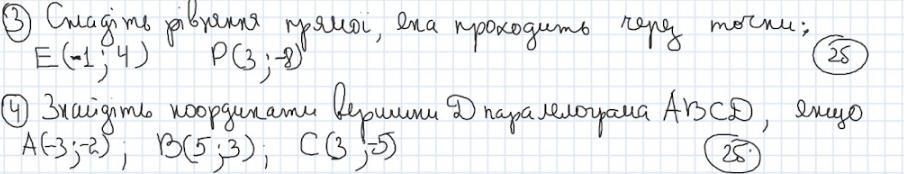 3 Складіть рівняння прямої, яка проходить через точки:
E(-1; 4) P(3; -8) 2б
4 Знайдіть координати вершини D паралелограма ABCD, якщо
A(-3; -2); B(5; 3); C(3; -5) 2б.